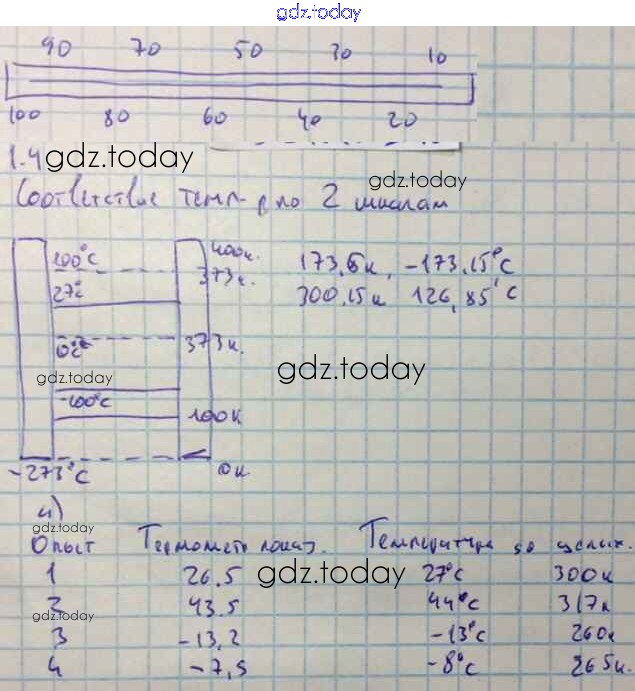 gdz.today
90 70 50 30 10
100 80 60 40 20
1.4 gdz.today
gdz.today
Соответствие темп-р по 2 шкалам
100°C 400к.
373к. 173,15к, -173,15°C
27° 300,15к 126,85°C
0° 373к.
gdz.today gdz.today
-100°C 100к
-273°C 0к.
а)
gdz.today
Опыт Термометр показ. Температура до целых.
1 26,5 gdz.today 27°C 300к
2 43,5 44°C 317к
gdz.today
3 -13,2 -13°C 260к
4 -7,5 -8°C 265к.